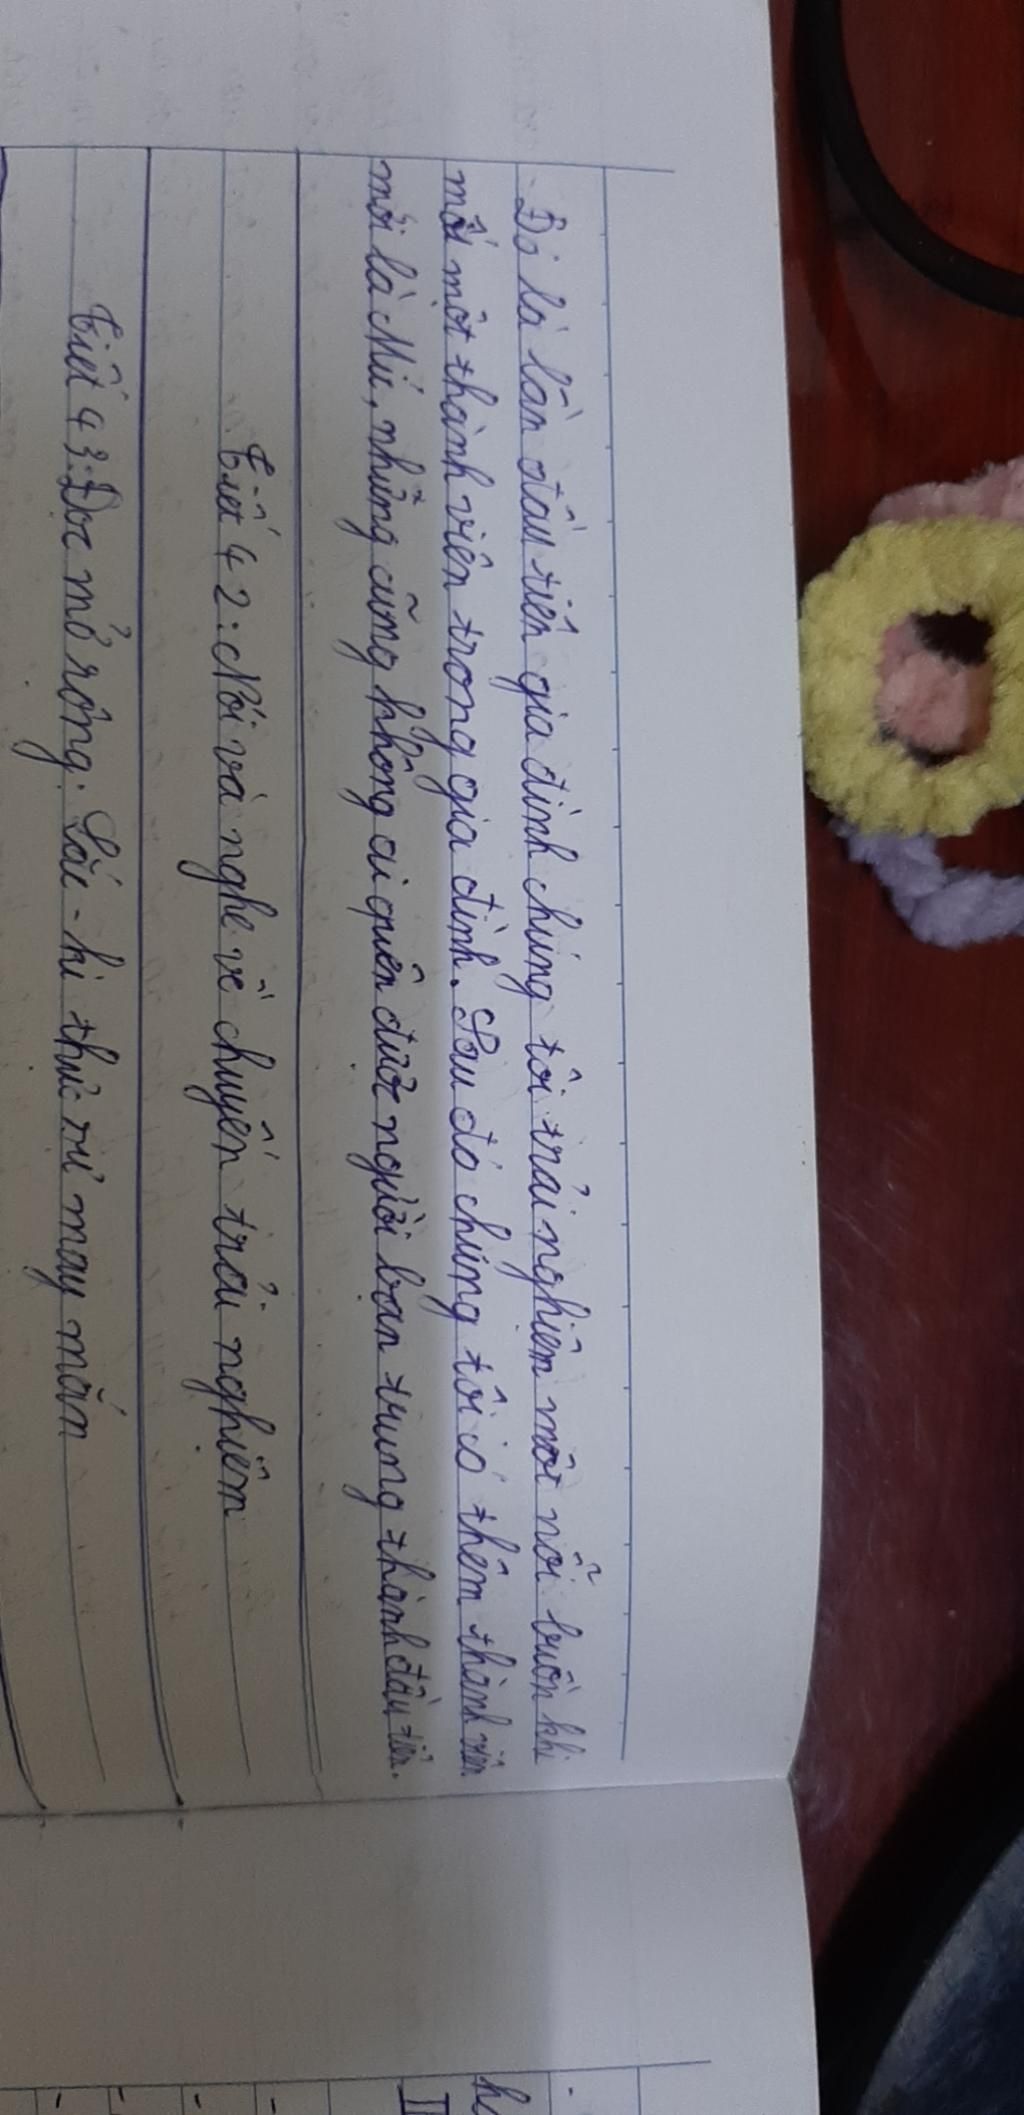 - Đó là lần đầu tiên gia đình chúng tôi trải nghiệm một nỗi buồn khi
mất một thành viên trong gia đình. Sau đó chúng tôi có thêm thành viên
mới là Mi, nhưng cũng không ai quên được người bạn trung thành đầu tiên.
Tiết 42: Nói và nghe về chuyến trải nghiệm
Tiết 43: Đọc mở rộng: Lắc-ki thực sự may mắn